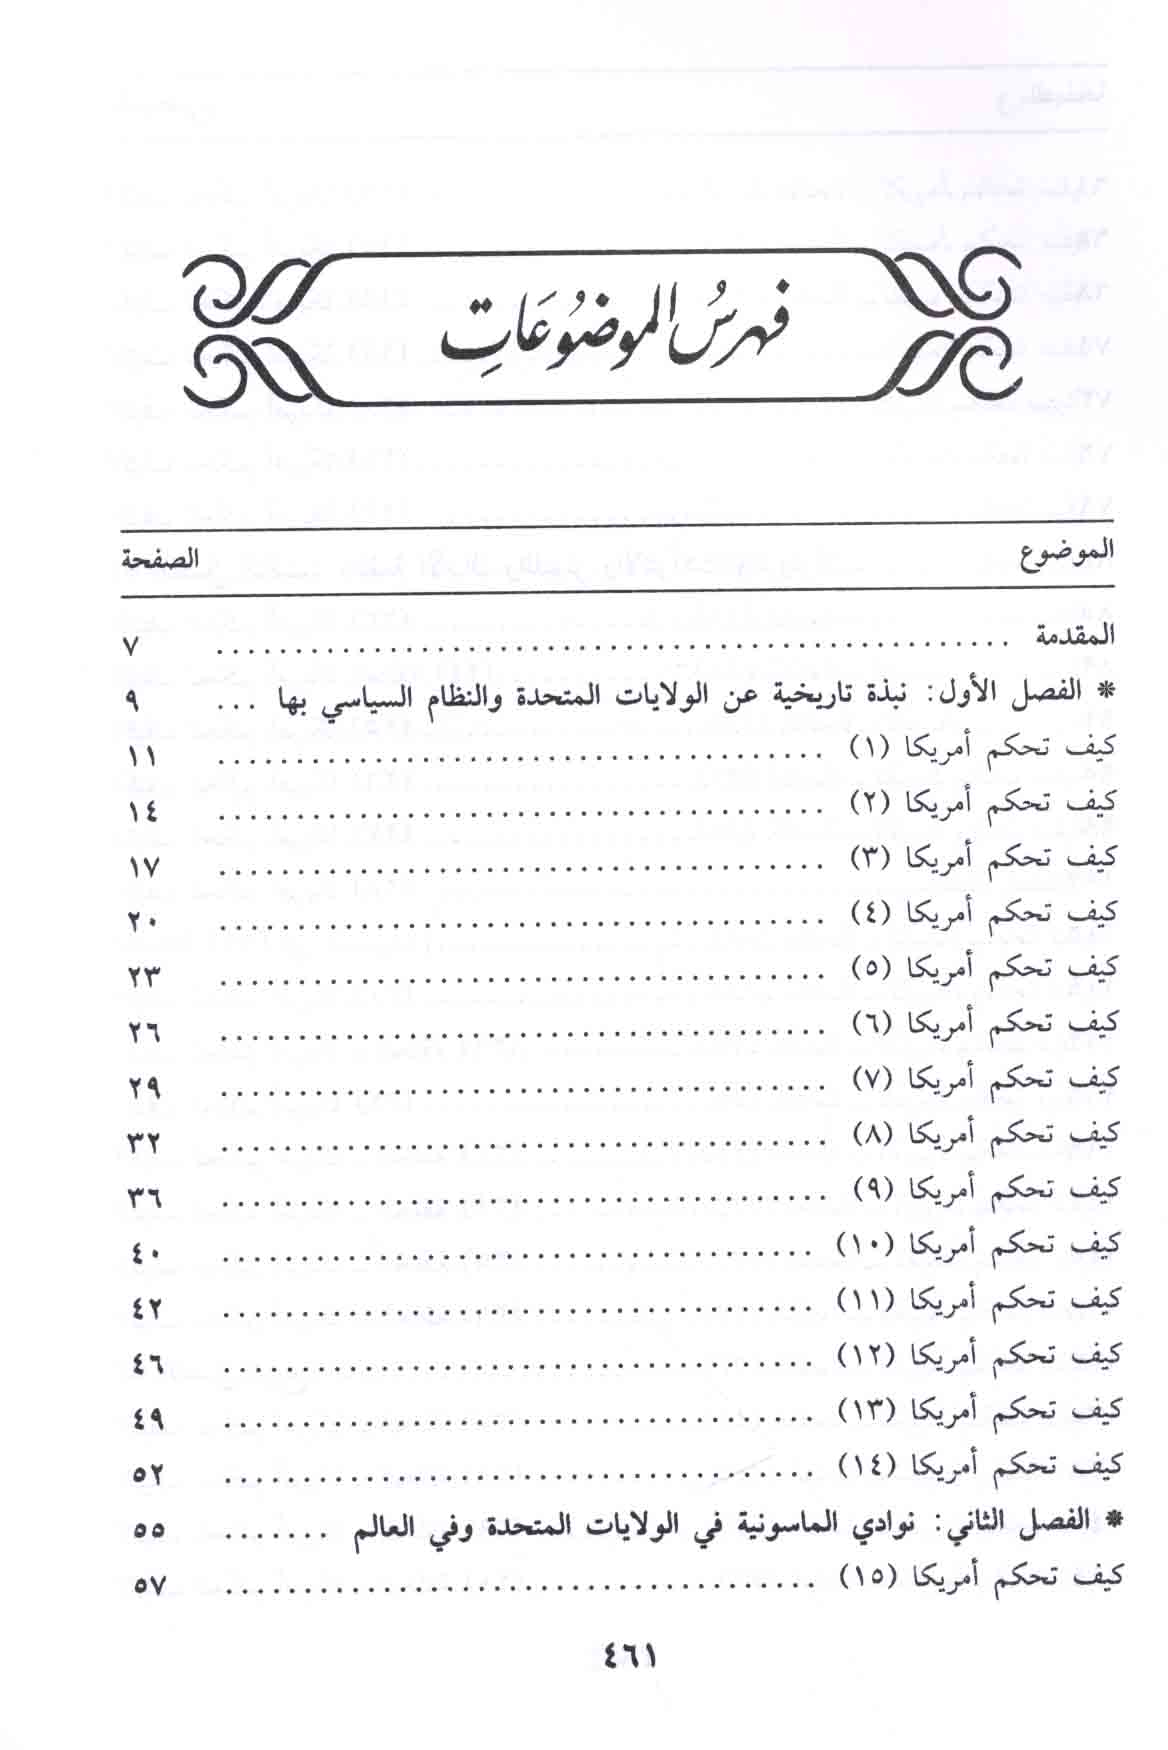 فهرسُ الموضُوعَاتِ
الموضوع الصفحة
المقدمة ................................................ ٧
* الفصل الأول: نبذة تاريخية عن الولايات المتحدة والنظام السياسي بها ... ٩
كيف تحكم أمريكا (١) ..................................... ١١
كيف تحكم أمريكا (٢) ..................................... ١٤
كيف تحكم أمريكا (٣) ..................................... ١٧
كيف تحكم أمريكا (٤) ..................................... ٢٠
كيف تحكم أمريكا (٥) ..................................... ٢٣
كيف تحكم أمريكا (٦) ..................................... ٢٦
كيف تحكم أمريكا (٧) ..................................... ٢٩
كيف تحكم أمريكا (٨) ..................................... ٣٢
كيف تحكم أمريكا (٩) ..................................... ٣٦
كيف تحكم أمريكا (١٠) .................................... ٤٠
كيف تحكم أمريكا (١١) .................................... ٤٢
كيف تحكم أمريكا (١٢) .................................... ٤٦
كيف تحكم أمريكا (١٣) .................................... ٤٩
كيف تحكم أمريكا (١٤) .................................... ٥٢
* الفصل الثاني: نوادي الماسونية في الولايات المتحدة وفي العالم ....... ٥٥
كيف تحكم أمريكا (١٥) .................................... ٥٧
٤٦١